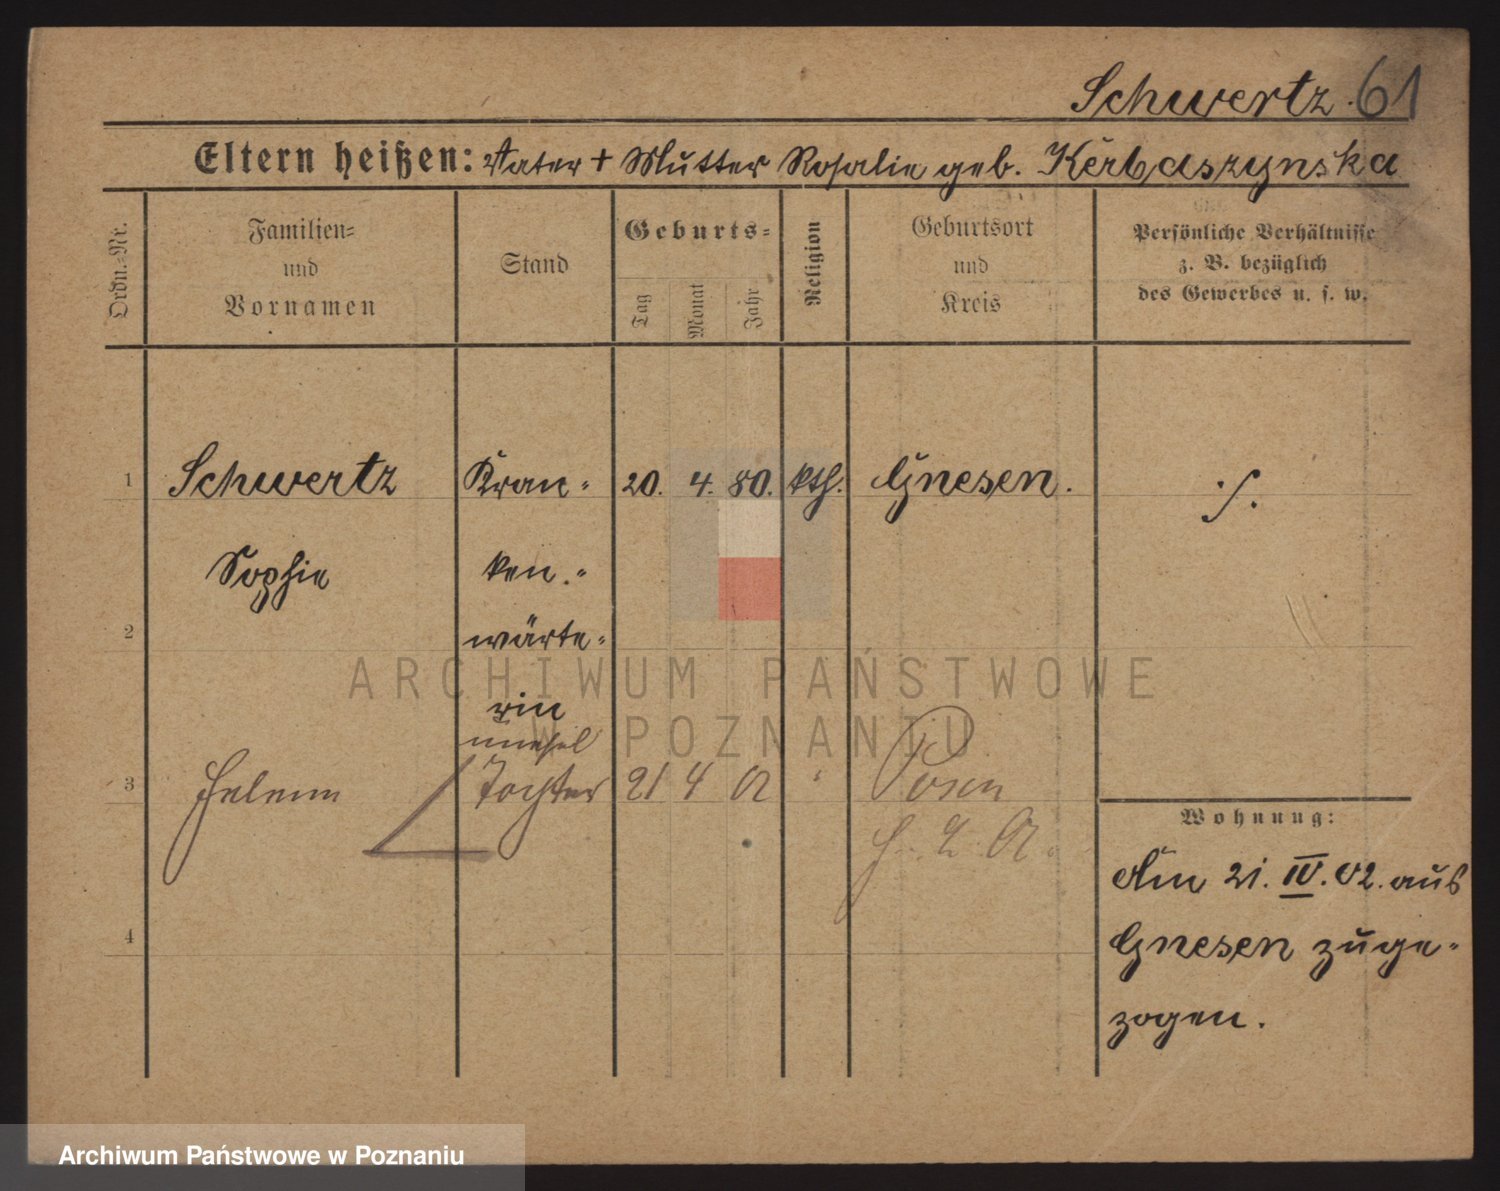 Schwertz. 61
Eltern heißen: Vater + Mutter Rosalie geb. Kérbaszynska
Ordn.-Nr.
Familien-
und
Vornamen
Stand
Geburts-
Tag
Monat
Jahr
Religion
Geburtsort
und
Kreis
Persönliche Verhältnisse
z. B. bezüglich
des Gewerbes u. s. w.
1 Schwertz Kran- 20. 4. 80. kth. Gnesen. ./.
Sophie ken-
2 wärte-
rin
unehel
3 Helene Tochter 21 4 " Posen
4
Wohnung:
Am 21. IV. 02. aus
Gnesen zuge-
zogen.
ARCHIWUM PAŃSTWOWE
W POZNANIU
Archiwum Państwowe w Poznaniu